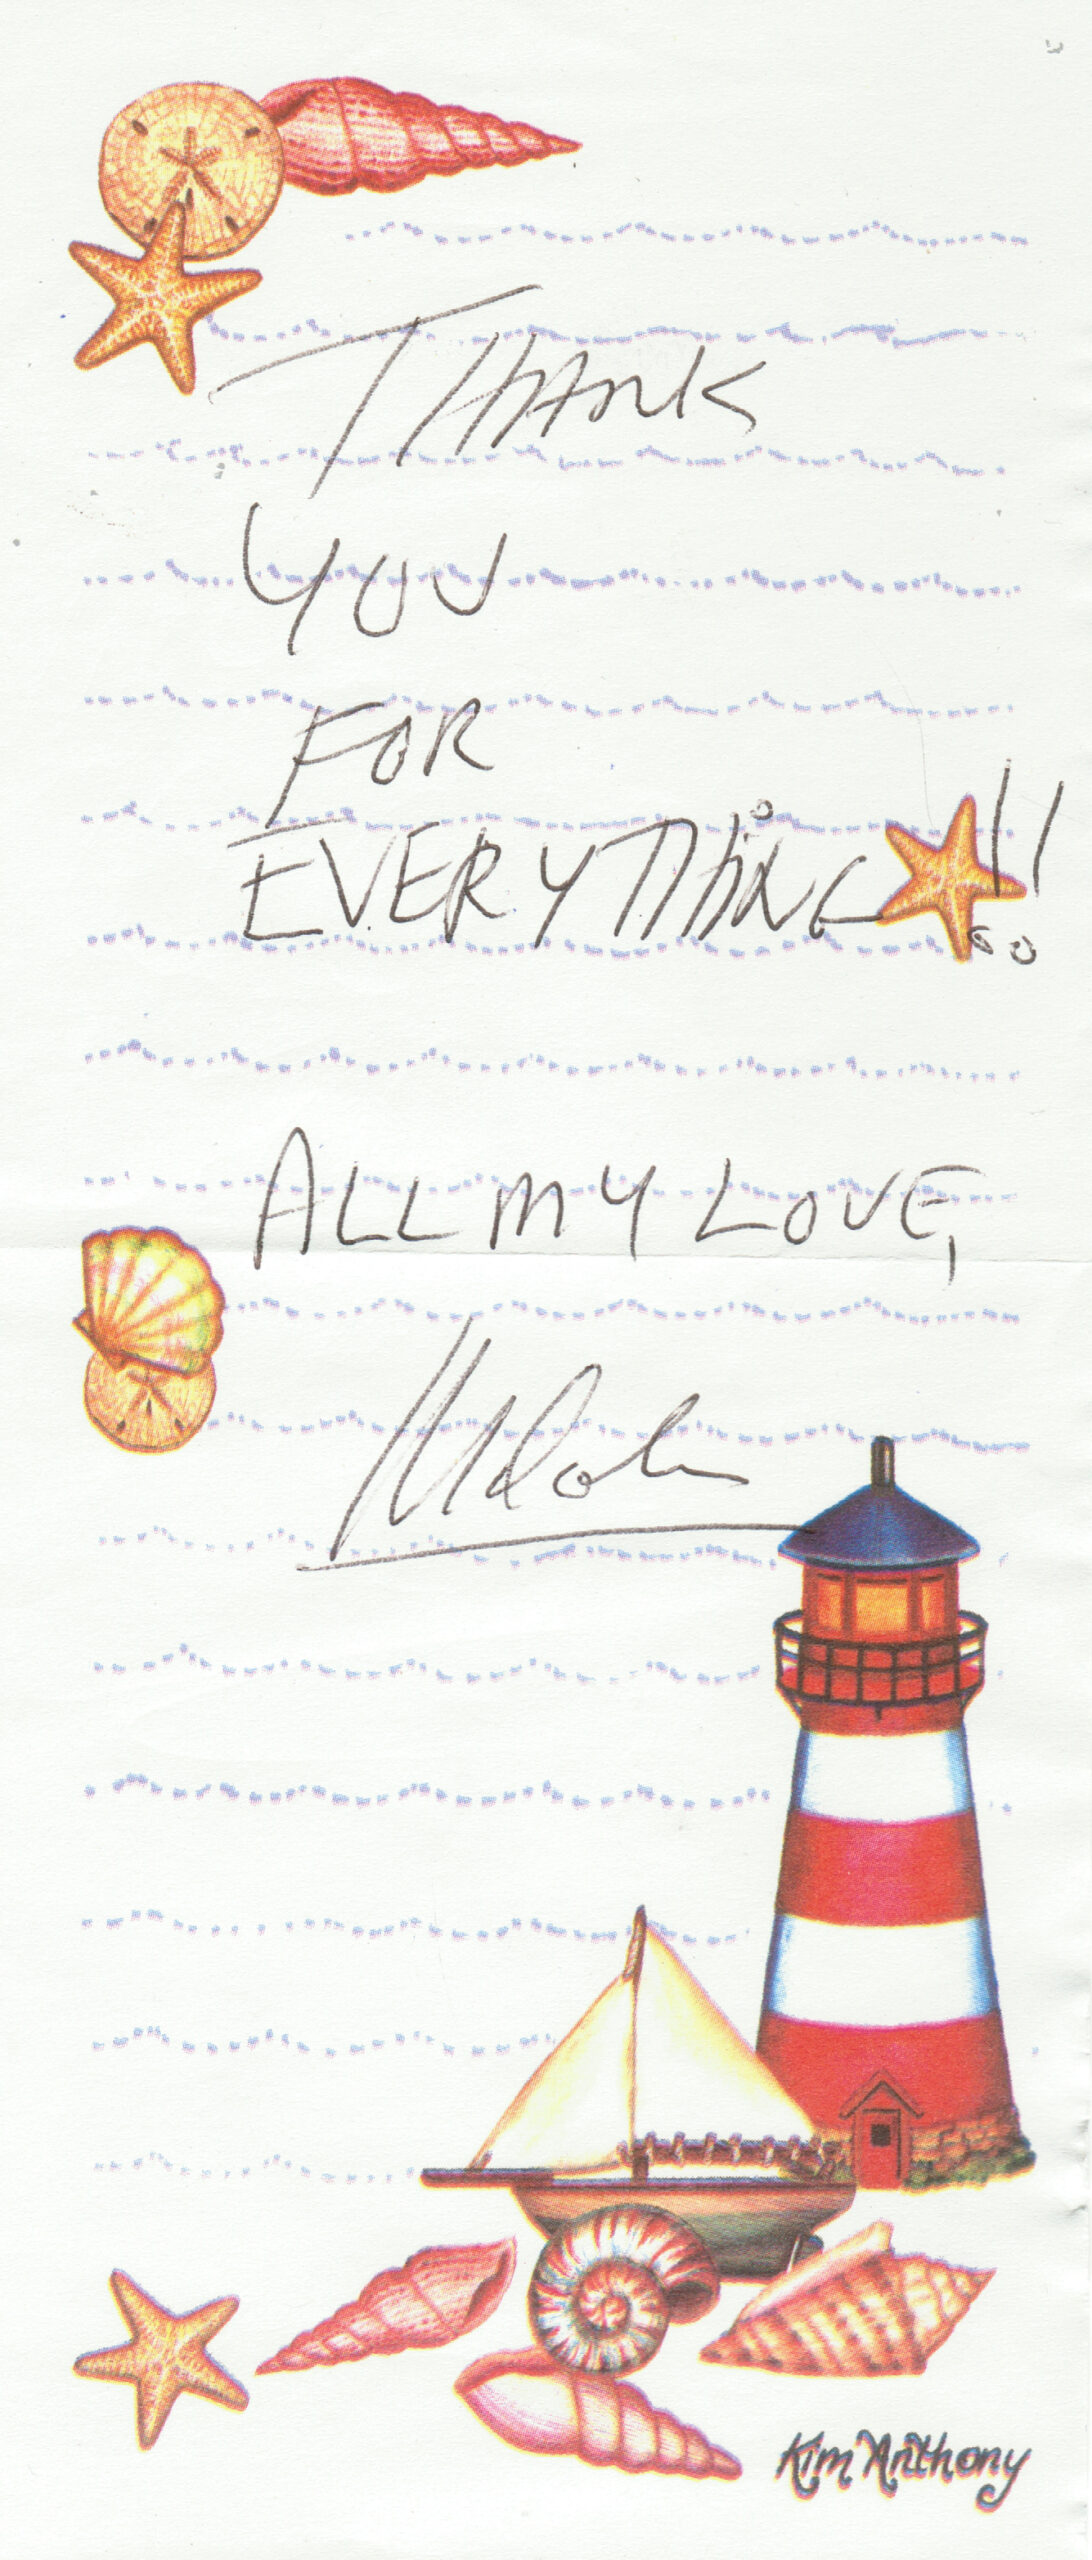 THANK
YOU
FOR
EVERYTHiNG!!
ALL MY LOVE,
Kim Anthony